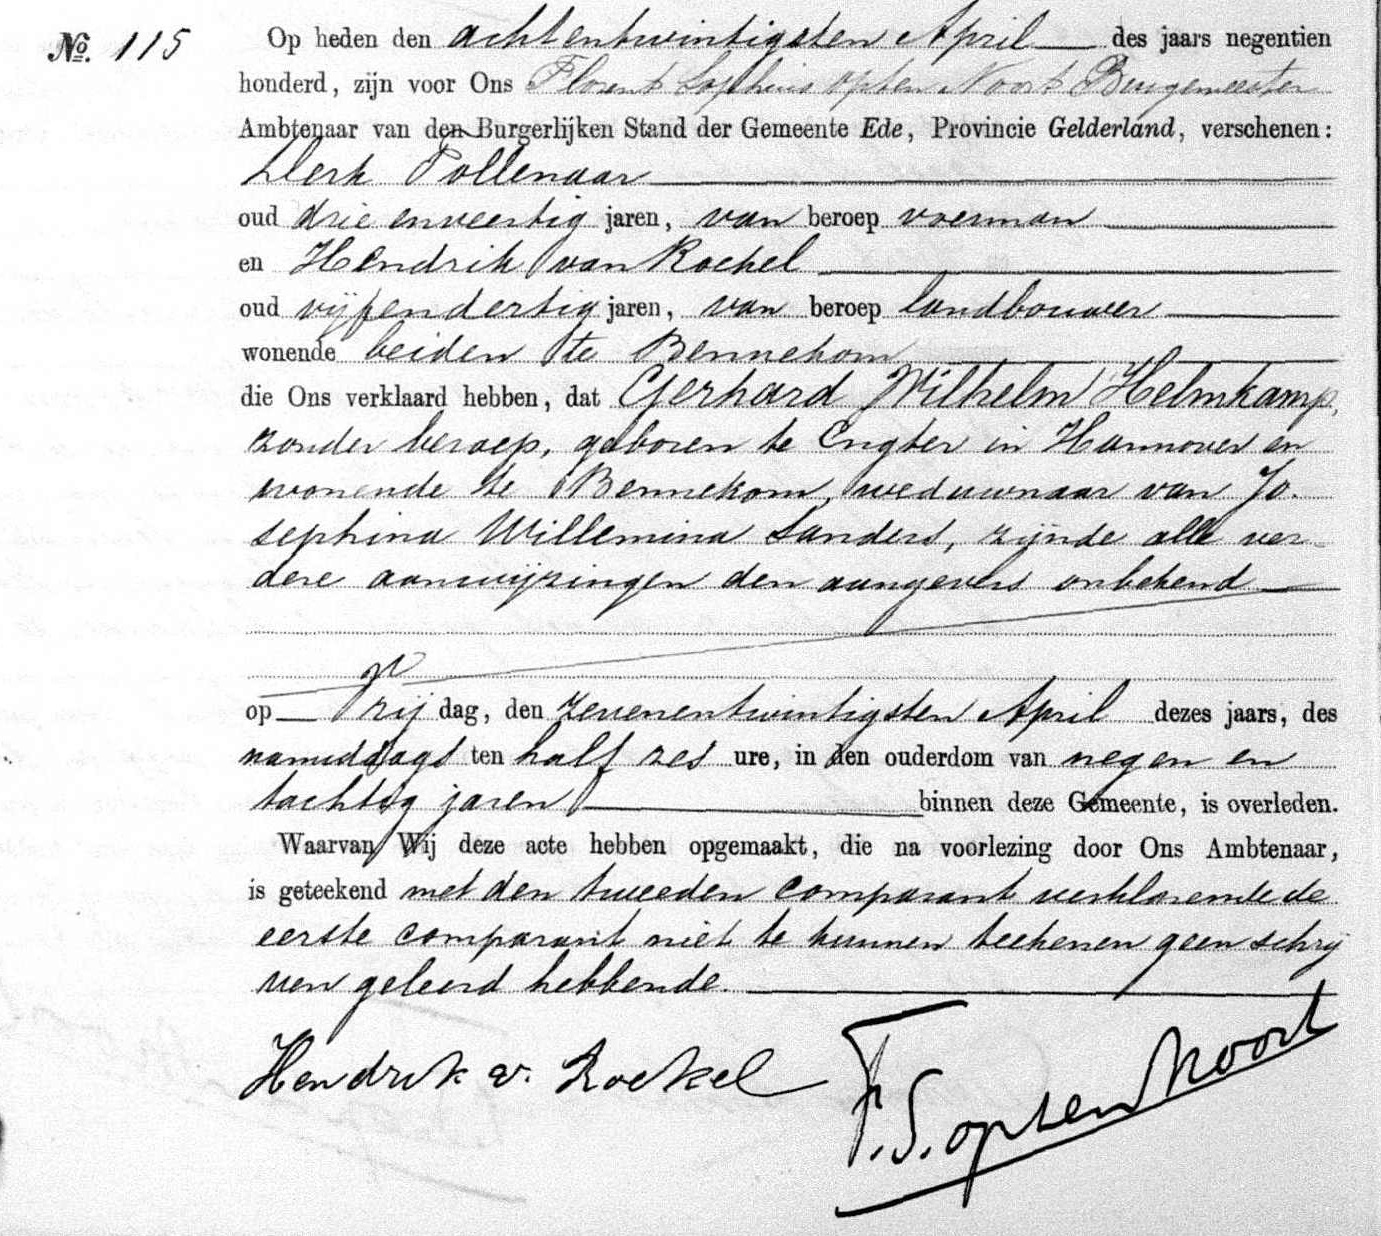 No. 115
Op heden den achtentwintigsten April des jaars negentien
honderd, zijn voor Ons Florent Sophius op ten Noort Burgemeester
Ambtenaar van den Burgerlijken Stand der Gemeente Ede, Provincie Gelderland, verschenen:
Derk Tollenaar
oud drie en veertig jaren, van beroep voerman
en Hendrik van Roekel
oud vijf en dertig jaren, van beroep landbouwer
wonende beiden te Bennekom
die Ons verklaard hebben, dat Gerhard Wilhelm Helmkamp,
zonder beroep, geboren te Engter in Hannover en
wonende te Bennekom, weduwnaar van Jo-
sephina Willemina Sanders, zijnde alle ver-
dere aanwijzingen den aangevers onbekend
op Vrijdag, den zevenentwintigsten April dezes jaars, des
namiddags ten half zes ure, in den ouderdom van negen en
tachtig jaren binnen deze Gemeente, is overleden.
Waarvan Wij deze acte hebben opgemaakt, die na voorlezing door Ons Ambtenaar,
is geteekend met den tweeden comparant verklarende de
eerste comparant niet te kunnen teekenen geen schrij
ven geleerd hebbende.
Hendrik v. Roekel
F.S. op ten Noort